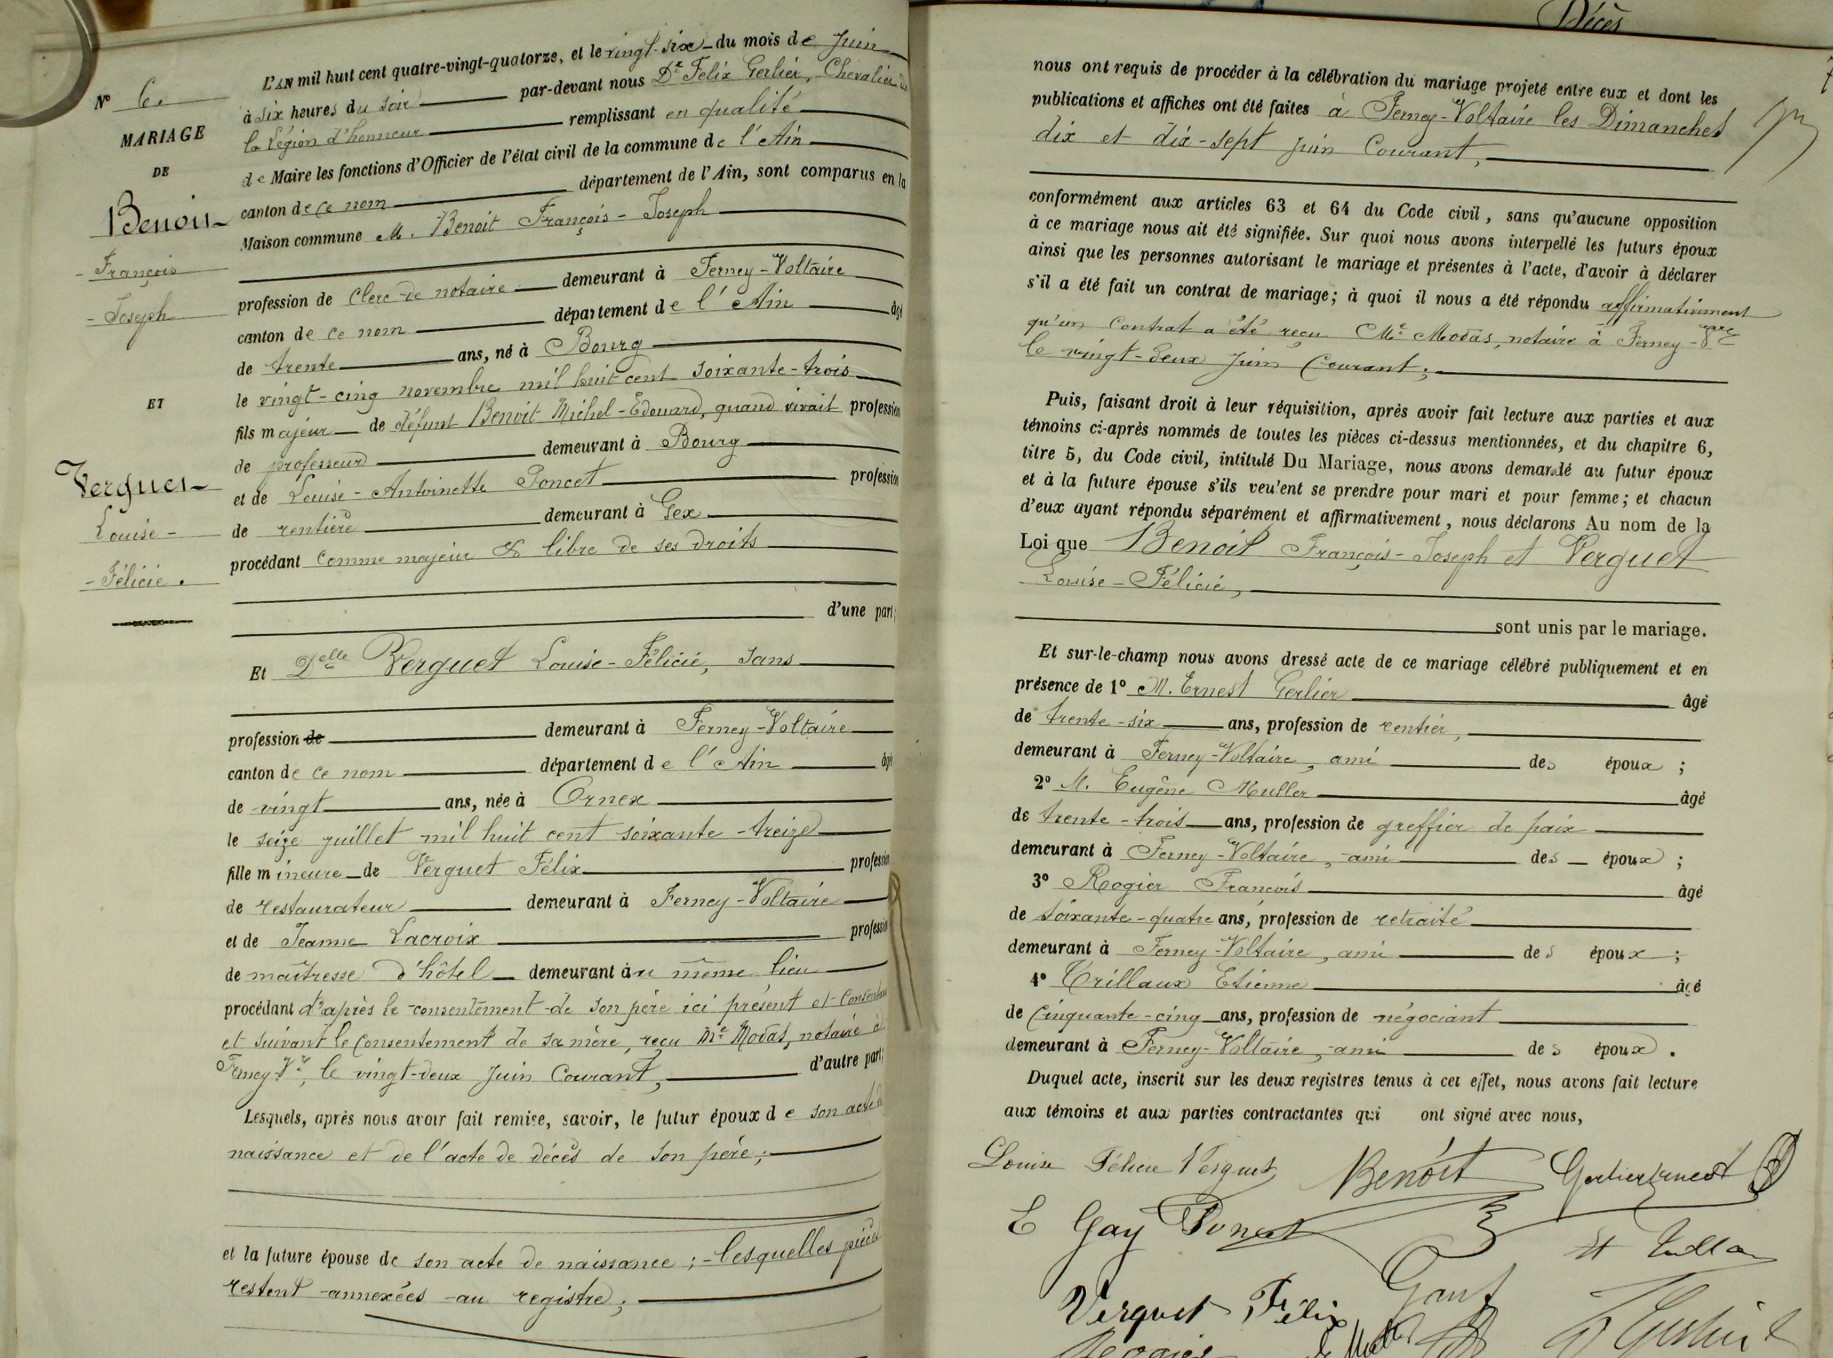 Nº 6.
MARIAGE
DE
Benoit
- François
- Joseph
ET
Verguet
Louise -
- Félicie.
L'AN mil huit cent quatre-vingt-quatorze, et le vingt-six du mois de Juin
à six heures du soir par-devant nous Dr Félix Gerlier, Chevalier de
la Légion d'honneur remplissant en qualité
de Maire les fonctions d'Officier de l'état civil de la commune de l'Ain
canton de ce nom département de l'Ain, sont comparus en la
Maison commune M. Benoit François-Joseph
profession de Clerc de notaire demeurant à Ferney-Voltaire
canton de ce nom département de l'Ain âgé
de trente ans, né à Bourg
le vingt-cinq novembre mil huit cent soixante-trois
fils majeur de défunt Benoit Michel-Edouard, quand vivait profession
de professeur demeurant à Bourg
et de Louise-Antoinette Poncet profession
de rentière demeurant à Gex
procédant comme majeur & libre de ses droits
d'une part;
Et Delle Verguet Louise-Félicie, sans
profession de demeurant à Ferney-Voltaire
canton de ce nom département de l'Ain âgé
de vingt ans, née à Ornex
le seize juillet mil huit cent soixante-treize
fille mineure de Verguet Félix profession
de restaurateur demeurant à Ferney-Voltaire
et de Jeanne Lacroix profession
de maîtresse d'hôtel demeurant au même lieu
procédant d'après le consentement de son père ici présent et consentant
et suivant le consentement de sa mère, reçu Me Modas, notaire à
Ferney-Vre, le vingt-deux Juin Courant, d'autre part;
Lesquels, après nous avoir fait remise, savoir, le futur époux de son acte de
naissance et de l'acte de décès de son père;
et la future épouse de son acte de naissance; - lesquelles pièces
restent annexées au registre;
Décès
7
nous ont requis de procéder à la célébration du mariage projeté entre eux et dont les
publications et affiches ont été faites à Ferney-Voltaire les Dimanches
dix et dix-sept juin Courant,
conformément aux articles 63 et 64 du Code civil, sans qu'aucune opposition
à ce mariage nous ait été signifiée. Sur quoi nous avons interpellé les futurs époux
ainsi que les personnes autorisant le mariage et présentes à l'acte, d'avoir à déclarer
s'il a été fait un contrat de mariage; à quoi il nous a été répondu affirmativement
qu'un Contrat a été reçu Me Modas, notaire à Ferney-Vre
le vingt-deux Juin Courant;
Puis, faisant droit à leur réquisition, après avoir fait lecture aux parties et aux
témoins ci-après nommés de toutes les pièces ci-dessus mentionnées, et du chapitre 6,
titre 5, du Code civil, intitulé Du Mariage, nous avons demandé au futur époux
et à la future épouse s'ils veulent se prendre pour mari et pour femme; et chacun
d'eux ayant répondu séparément et affirmativement, nous déclarons Au nom de la
Loi que Benoit François-Joseph et Verguet
Louise-Félicie,
sont unis par le mariage.
Et sur-le-champ nous avons dressé acte de ce mariage célébré publiquement et en
présence de 1º M. Ernest Gerlier âgé
de trente-six ans, profession de rentier,
demeurant à Ferney-Voltaire, ami des époux;
2º M. Eugène Muller âgé
de trente-trois ans, profession de greffier de paix
demeurant à Ferney-Voltaire, ami des époux;
3º Rogier François âgé
de soixante-quatre ans, profession de retraité
demeurant à Ferney-Voltaire, ami des époux;
4º Trillaux Etienne âgé
de Cinquante-cinq ans, profession de négociant
demeurant à Ferney-Voltaire, ami des époux.
Duquel acte, inscrit sur les deux registres tenus à cet effet, nous avons fait lecture
aux témoins et aux parties contractantes qui ont signé avec nous,
Louise Félicie Verguet Benoit Gerlier Ernest
E Gay Poncet
Verguet Félix